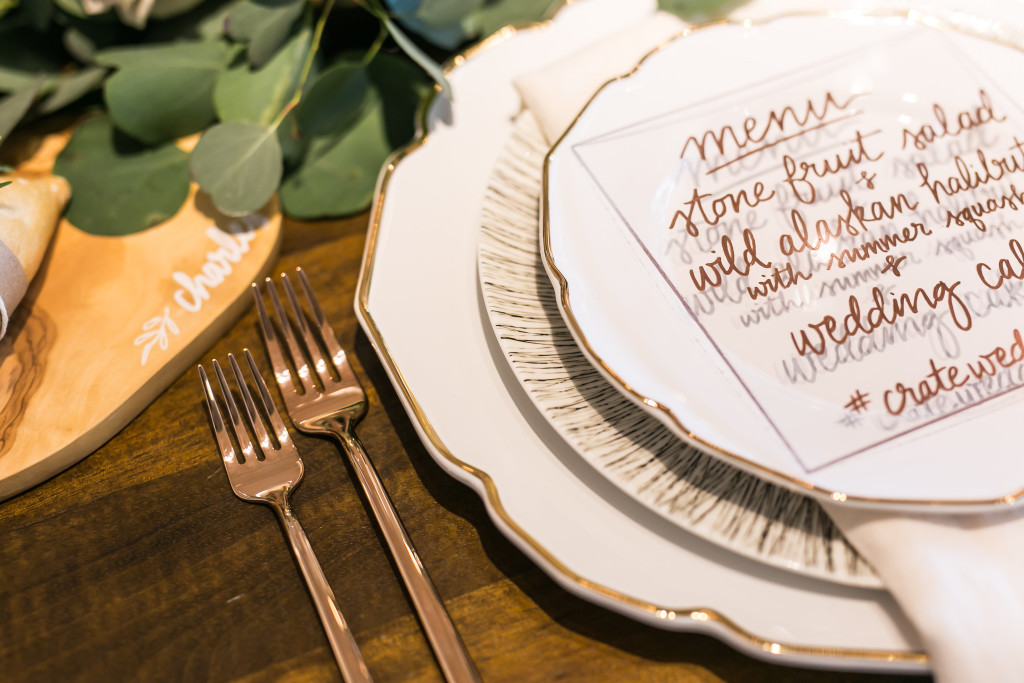 menu
stone fruit salad
&
wild alaskan halibut
with summer squash
&
wedding
#cratewed